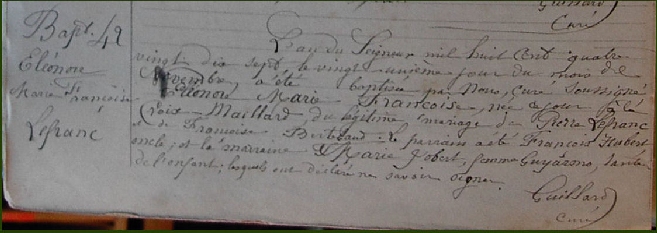 Guillard
Curé
Bapt. 42
Eléonore
Marie Françoise
Lefranc
L'an du Seigneur mil huit cent quatre
vingt dix sept, le vingt unième jour du mois de
Novembre, a été baptisée par Nous, Curé soussigné
Eléonore Marie Françoise, née ce jour à la
Croix-Maillard du légitime mariage de Pierre Lefranc
et de Françoise Le parrain a été François Hubert
oncle; et la marraine Marie Jobert, femme tante
de l'enfant; lesquels ont déclaré ne savoir signer.
Guillard
Curé